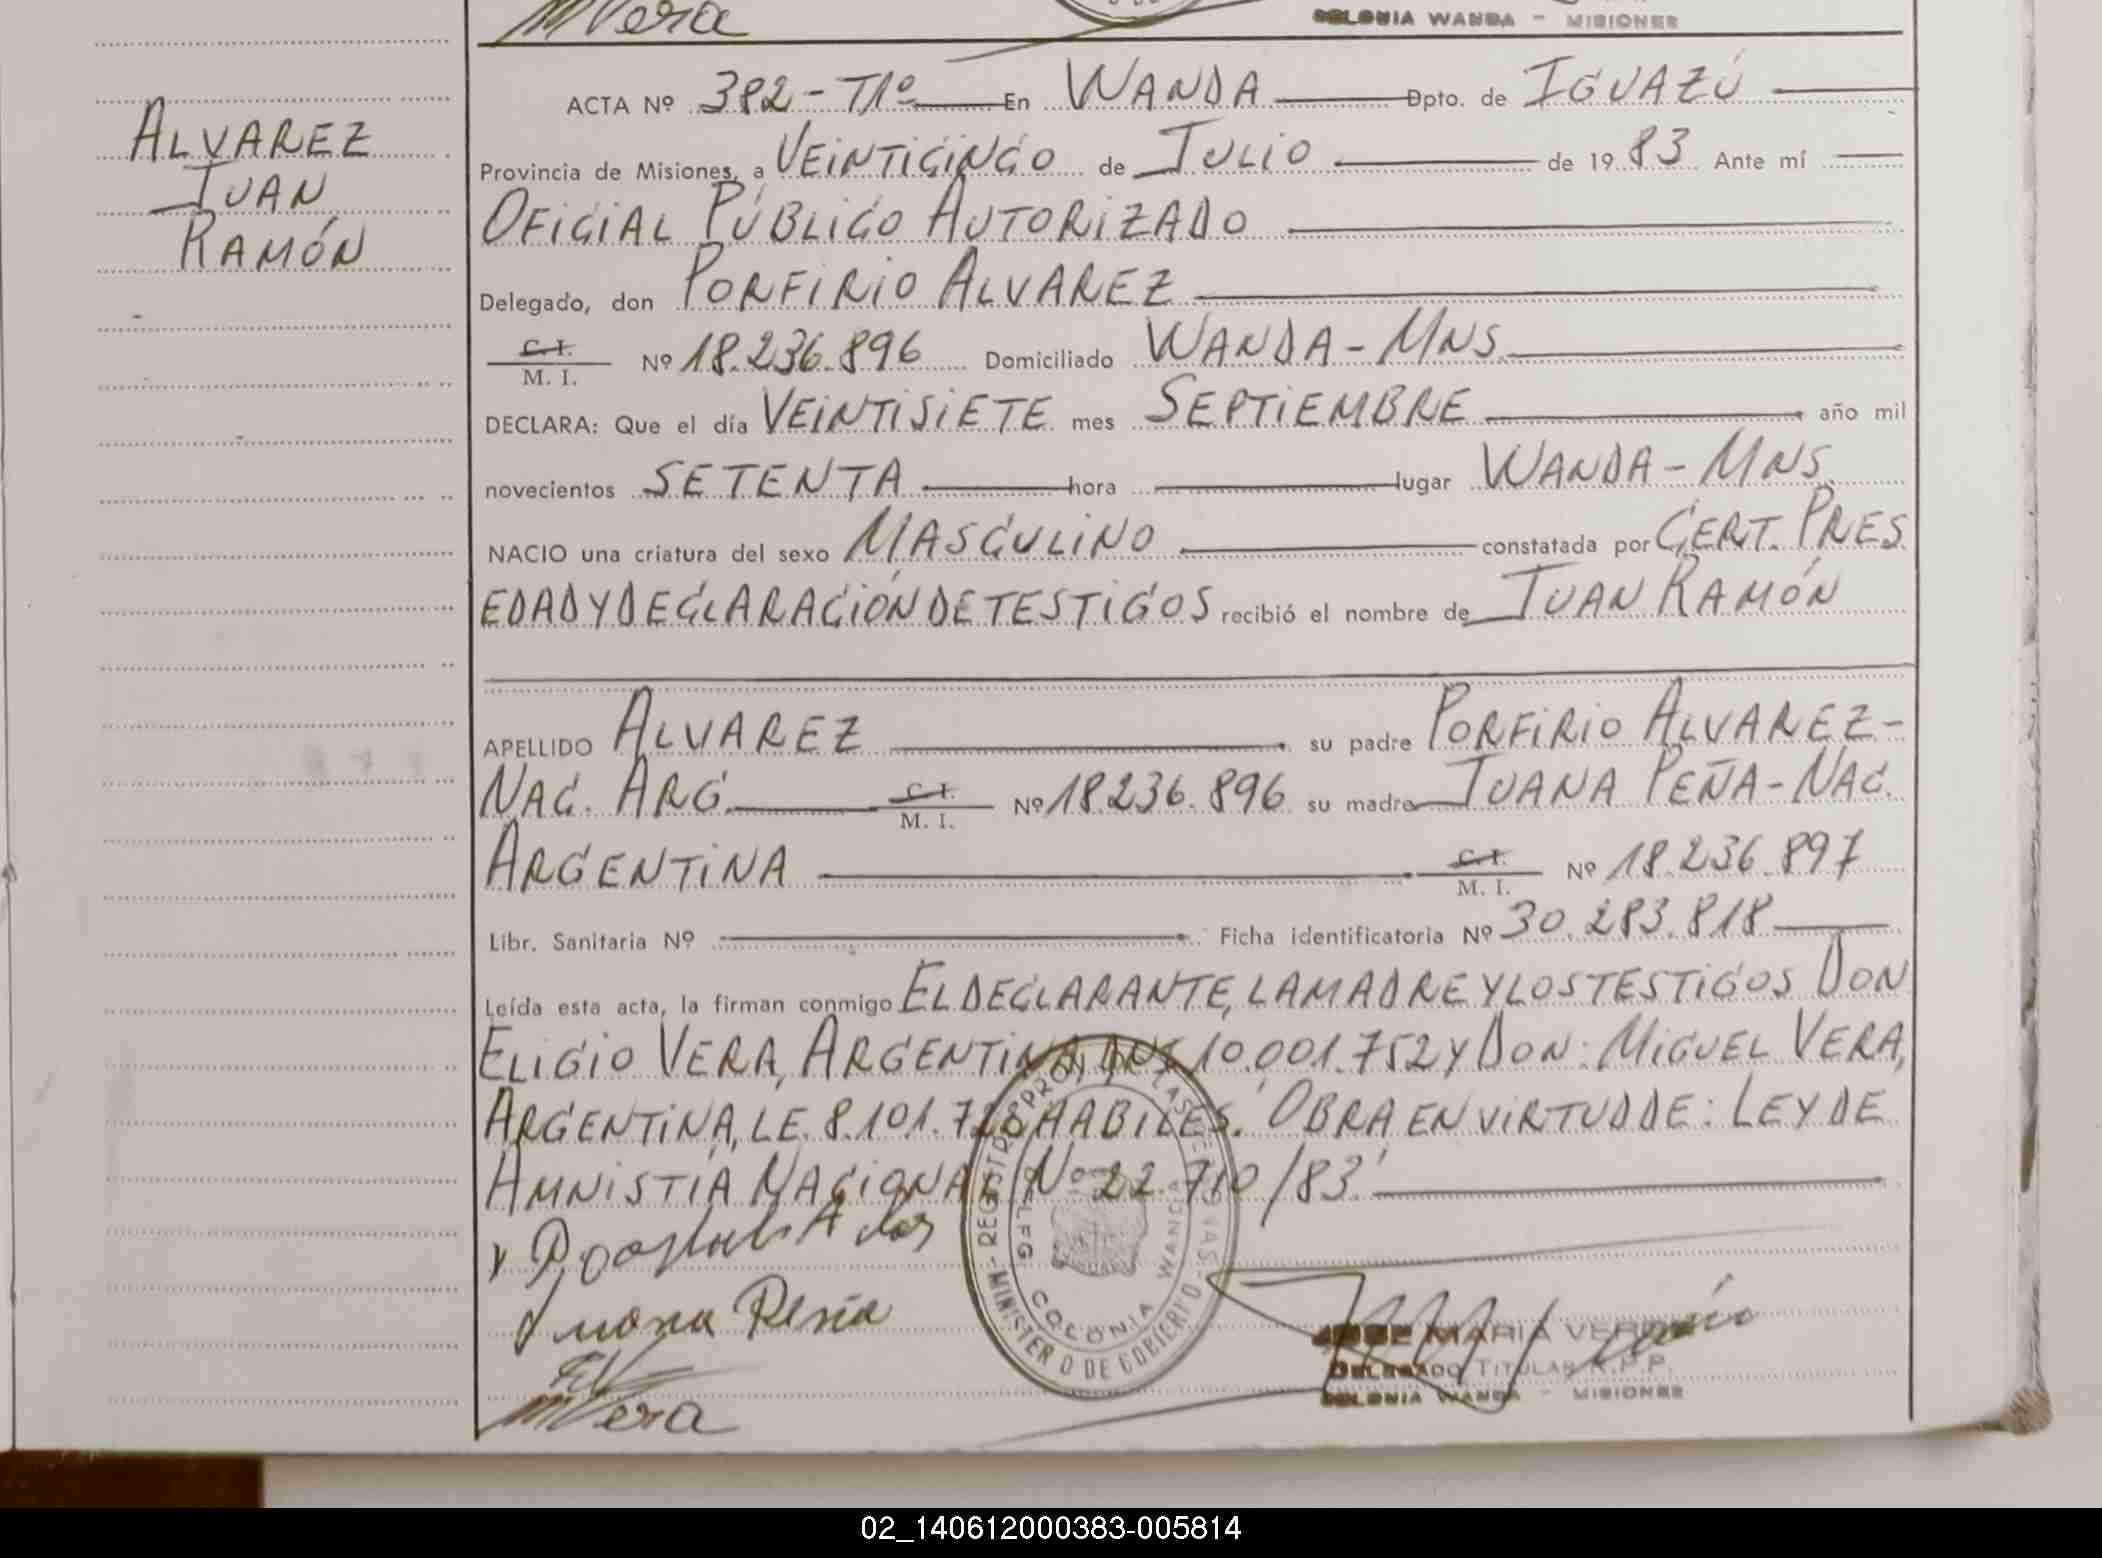 MVera
COLONIA WANDA - MISIONES
ALVAREZ
JUAN
RAMÓN
ACTA Nº 382-T1º En WANDA Dpto. de IGUAZÚ
Provincia de Misiones, a VEINTICINCO de JULIO de 1983 Ante mí
OFICIAL PÚBLICO AUTORIZADO
Delegado, don PORFIRIO ALVAREZ
C.I. M. I. Nº 18.236.896 Domiciliado WANDA-MNS
DECLARA: Que el día VEINTISIETE mes SEPTIEMBRE año mil
novecientos SETENTA hora lugar WANDA-MNS
NACIO una criatura del sexo MASCULINO constatada por CERT. PRES
EDAD Y DECLARACIÓN DE TESTIGOS recibió el nombre de JUAN RAMÓN
APELLIDO ALVAREZ su padre PORFIRIO ALVAREZ-
NAC. ARG. C.I. M. I. Nº 18.236.896 su madre JUANA PEÑA-NAC.
ARGENTINA C.I. M. I. Nº 18.236.897
Libr. Sanitaria Nº Ficha identificatoria Nº 30.283.818
Leída esta acta, la firman conmigo EL DECLARANTE, LA MADRE Y LOS TESTIGOS DON
ELIGIO VERA, ARGENTINA, DNI 10.001.752 Y DON: MIGUEL VERA,
ARGENTINA, LE. 8.101.728 HABILES. OBRA EN VIRTUD DE: LEY DE
AMNISTÍA NACIONAL Nº 22.710/83.
Juana Peña
MVera
COLONIA WANDA
MINISTERIO DE GOBIERNO
MARIA
DELEGADO TITULAR R.P.P.
COLONIA WANDA - MISIONES
02_140612000383-005814